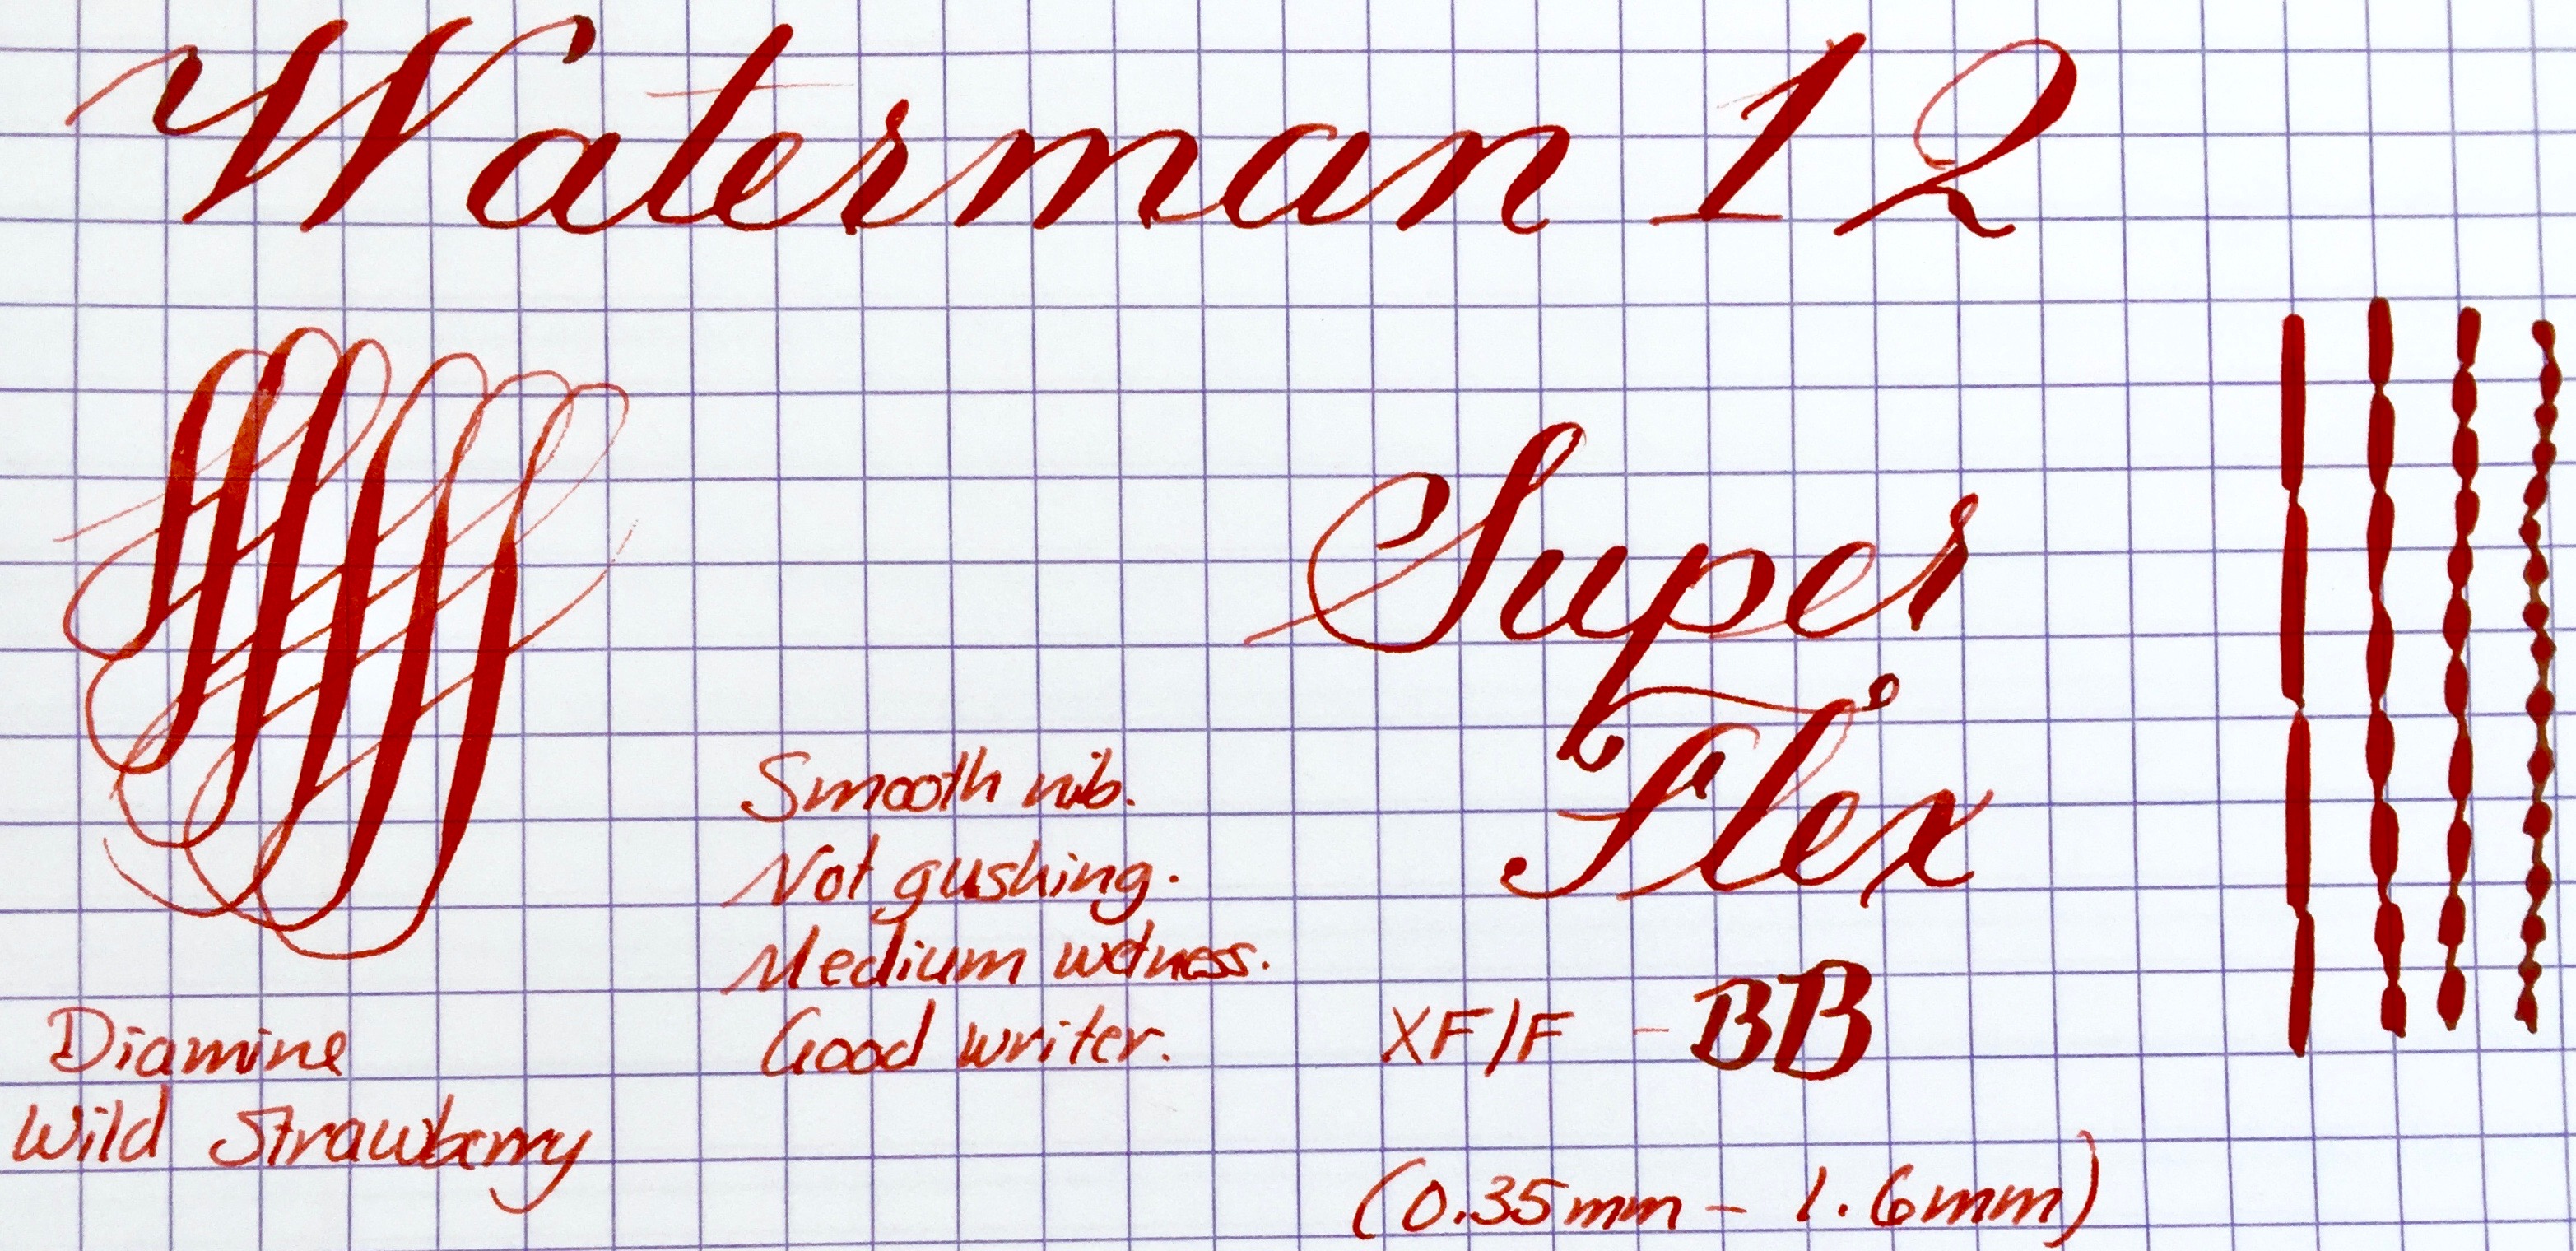 Waterman 12
Super
Flex
Smooth nib.
Not gushing.
Medium wetness.
Good writer.
XF/F - BB
Diamine
Wild Strawberry
(0.35mm - 1.6mm)